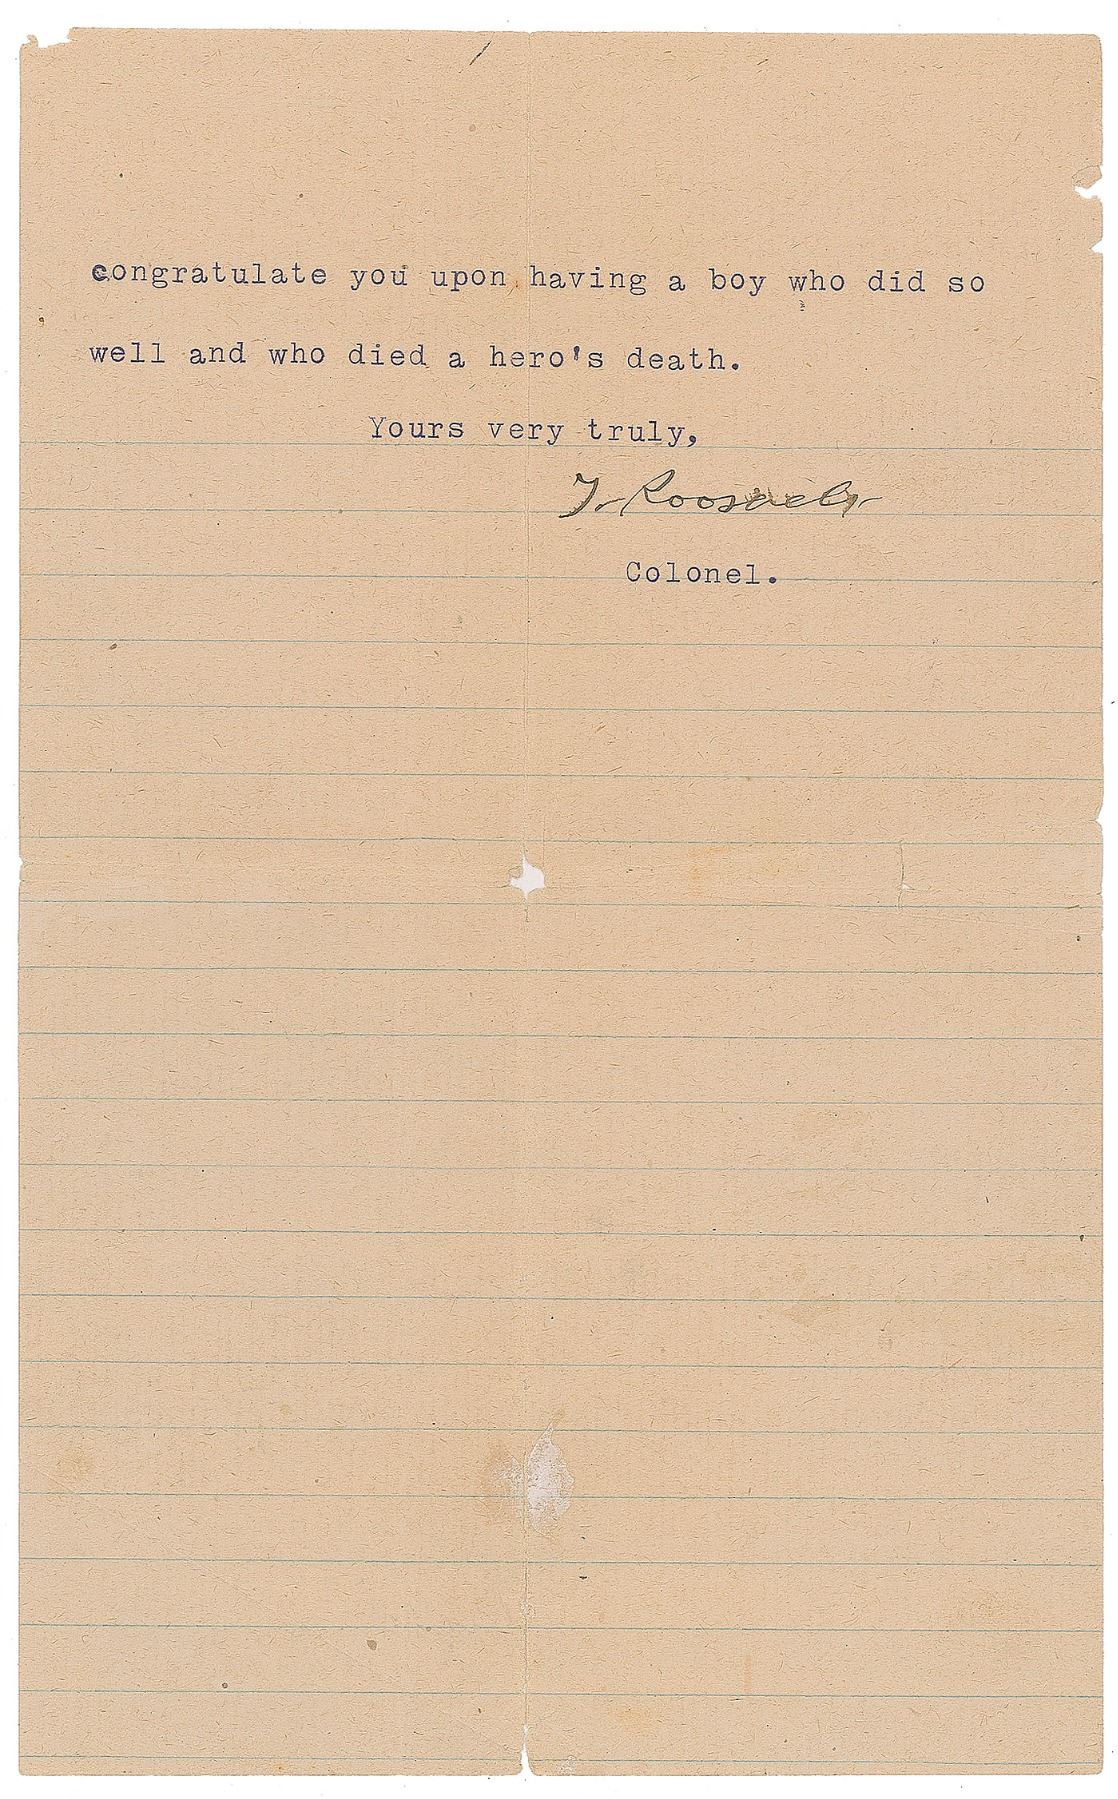 congratulate you upon having a boy who did so
well and who died a hero's death.
Yours very truly,
T. Roosevelt
Colonel.